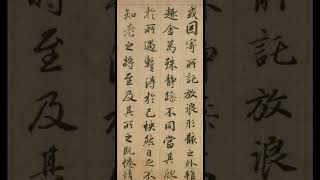 或因寄所託放浪形骸之外雖
趣舍萬殊靜躁不同當其欣
於所遇蹔得於己怏然自足不
知老之將至及其所之既惓情